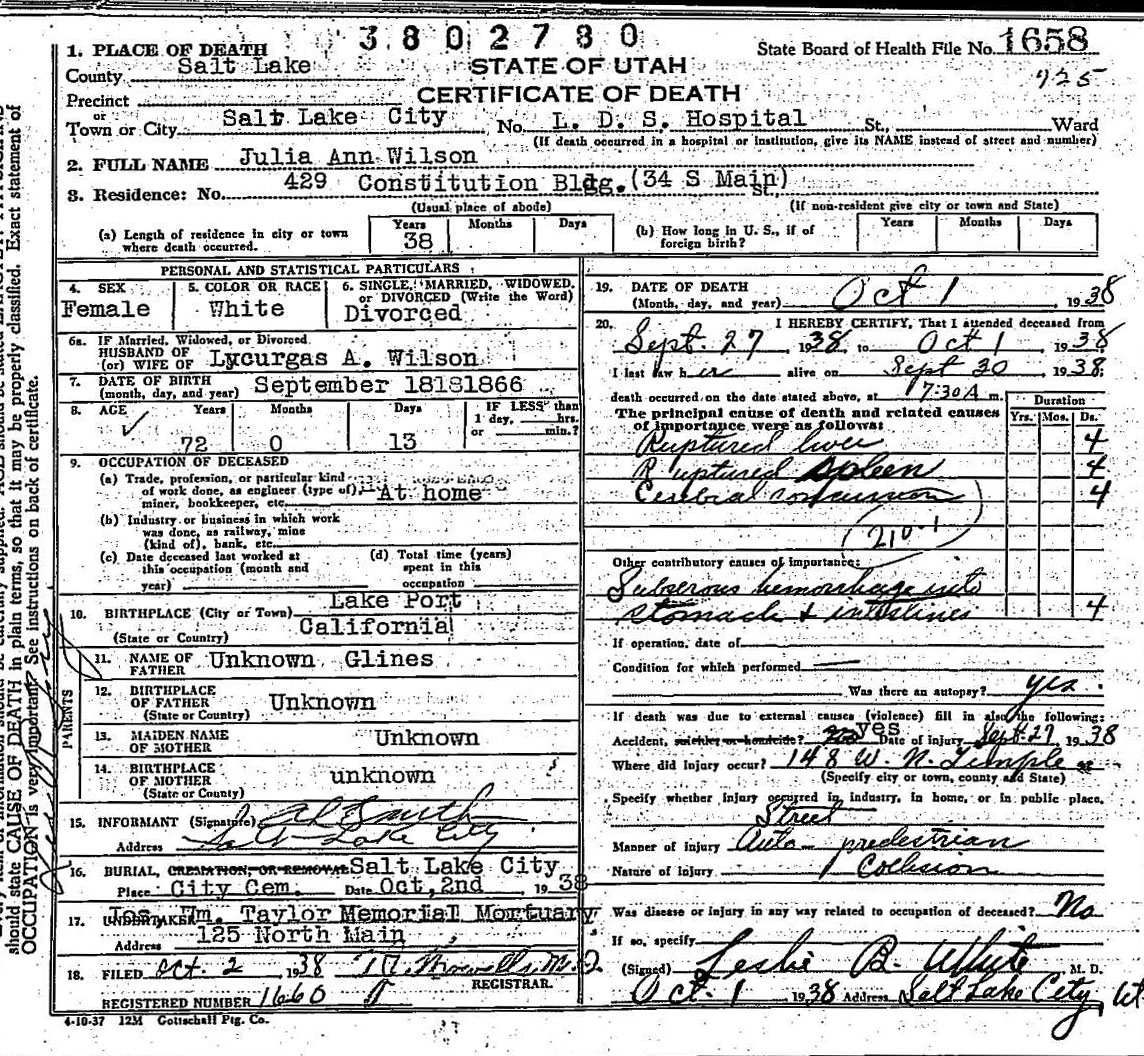 3802780
1. PLACE OF DEATH
State Board of Health File No. 1658
County Salt Lake
STATE OF UTAH
725
Precinct
CERTIFICATE OF DEATH
or
Town or City Salt Lake City No. L. D. S. Hospital St., Ward
(If death occurred in a hospital or institution, give its NAME instead of street and number)
2. FULL NAME Julia Ann Wilson
3. Residence: No. 429 Constitution Bldg. (34 S Main) St.
(Usual place of abode) (If non-resident give city or town and State)
(a) Length of residence in city or town where death occurred. Years 38 Months Days
(b) How long in U. S., if of foreign birth? Years Months Days
PERSONAL AND STATISTICAL PARTICULARS
4. SEX Female
5. COLOR OR RACE White
6. SINGLE, MARRIED, WIDOWED, or DIVORCED (Write the Word) Divorced
6a. IF Married, Widowed, or Divorced
HUSBAND OF
(or) WIFE OF Lycurgas A. Wilson
7. DATE OF BIRTH
(month, day, and year) September 18181866
8. AGE Years 72 Months 0 Days 13
IF LESS than
1 day, hrs.
or min.?
9. OCCUPATION OF DECEASED
(a) Trade, profession, or particular kind
of work done, as engineer (type of), At home
miner, bookkeeper, etc.
(b) Industry or business in which work
was done, as railway, mine
(kind of), bank, etc.
(c) Date deceased last worked at
this occupation (month and
year)
(d) Total time (years)
spent in this
occupation
10. BIRTHPLACE (City or Town) Lake Port
(State or Country) California
PARENTS
11. NAME OF FATHER Unknown Glines
12. BIRTHPLACE OF FATHER Unknown
(State or Country)
13. MAIDEN NAME OF MOTHER Unknown
14. BIRTHPLACE OF MOTHER unknown
(State or Country)
15. INFORMANT (Signature) Smith
Address Salt Lake City
16. BURIAL, CREMATION, OR REMOVAL Salt Lake City
Place City Cem. Date Oct, 2nd 1938
17. UNDERTAKER Jos. Wm. Taylor Memorial Mortuary
Address 125 North Main
18. FILED Oct. 2 1938
REGISTRAR.
REGISTERED NUMBER 1660
4-10-37 12M Gottschall Ptg. Co.
19. DATE OF DEATH
(Month, day, and year) Oct 1, 1938
20. I HEREBY CERTIFY, That I attended deceased from
Sept. 27, 1938, to Oct 1, 1938
I last saw her alive on Sept 30, 1938;
death occurred on the date stated above, at 7:30 A m.
Duration
The principal cause of death and related causes
of importance were as follows: Yrs. Mos. Ds.
Ruptured liver 4
Ruptured spleen 4
Cerebral concussion 4
210-1
Other contributory causes of importance:
Subserous hemorrhage into
stomach & intestines 4
If operation, date of
Condition for which performed
Was there an autopsy? yes.
If death was due to external causes (violence) fill in also the following:
Accident, suicide, or homicide? yes Date of injury Sept. 27 1938
Where did injury occur? 148 W. N. Temple st
(Specify city or town, county and State)
Specify whether injury occurred in industry, in home, or in public place.
Street
Manner of injury Auto - pedestrian
Nature of Injury Collision
Was disease or injury in any way related to occupation of deceased? No
If so, specify
(Signed) Leslie B. White M. D.
Oct. 1 1938 Address Salt Lake City, Ut
should state CAUSE OF DEATH in plain terms, so that it may be properly classified. Exact statement of
OCCUPATION is very important. See instructions on back of certificate.